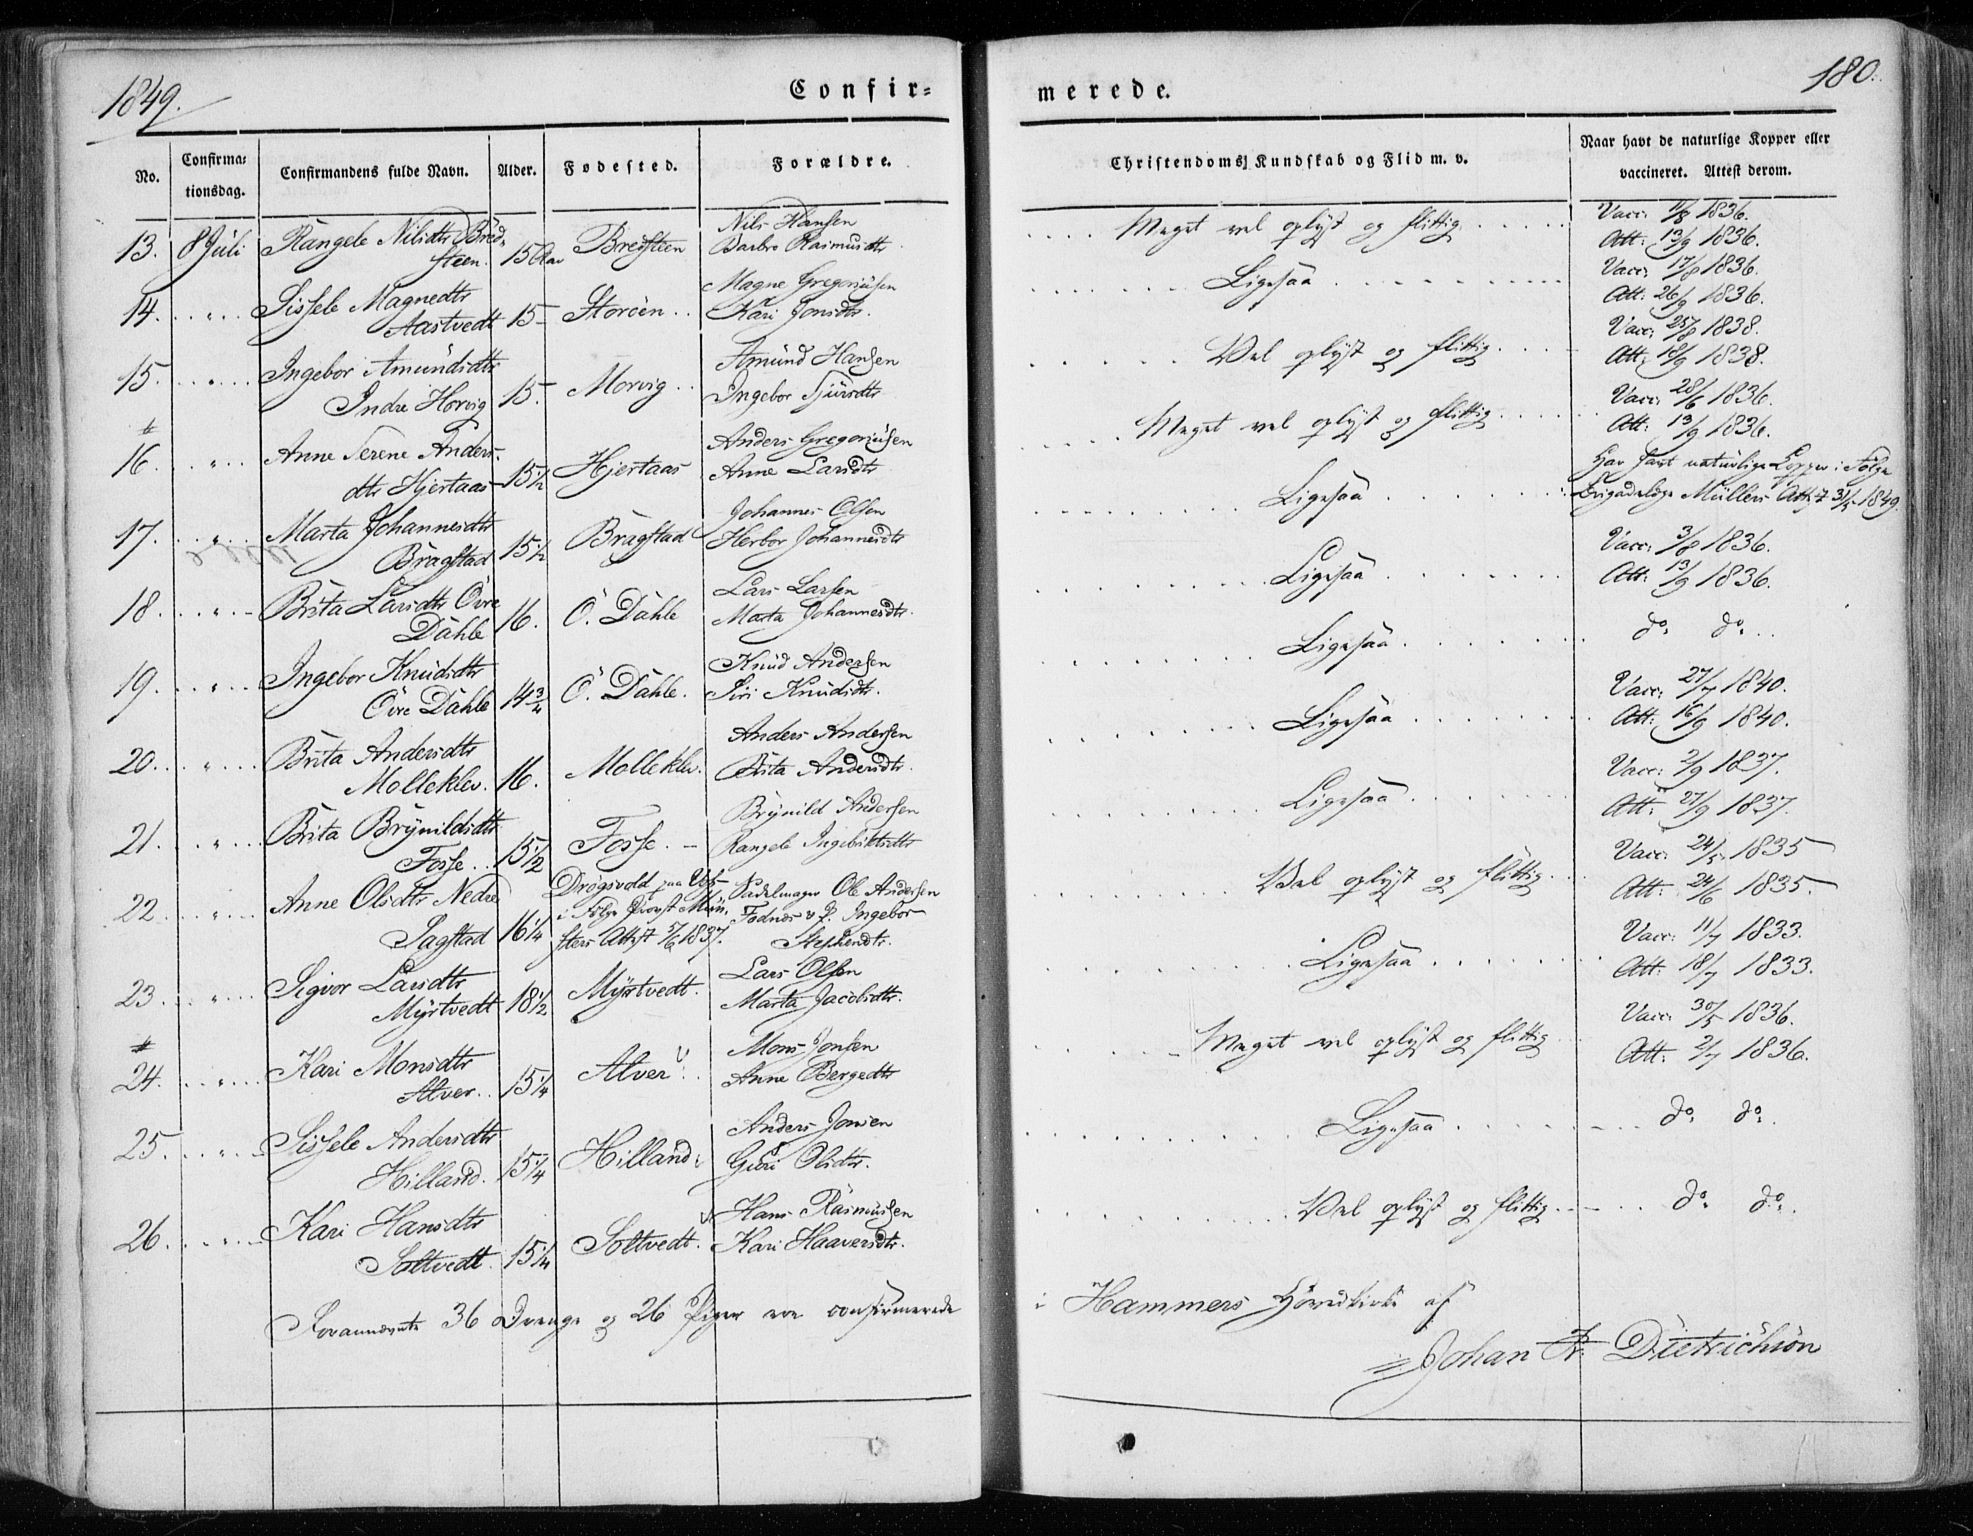 1849.
Confir=
merede.
180.
No.
Confirma=
tionsdag.
Confirmandens fulde Navn.
Alder.
Fødested.
Forældre.
Christendoms Kundskab og Flid m. v.
Naar havt de naturlige Kopper eller
vaccineret. Attest derom.
13. 8 Juli Rangele Nilsdtr Bred-
steen. 15 Aar Bredsteen
Nils Hansen
Barbro Rasmusdtr
Meget vel oplyst og flittig
Vacc: 11/8 1836.
Att: 13/9 1836.
14. " Sissele Magnedtr
Aastvedt 15 - Storøen
Magne Gregoriusen
Kari Jonsdtr.
Ligesaa
Vacc: 17/8 1836.
Att: 26/9 1836.
15. " Ingebor Amundsdtr
Indre Horvig 15. Morvig
Amund Hansen
Ingebor Sjursdtr
Vel oplyst og flittig
Vacc: 25/8 1838.
Att: 18/9 1838.
16. " Anne Serene Anders-
dtr Hjertaas 15 1/2 Hjertaas
Anders Gregoriusen
Anne Larsdtr
Meget vel oplyst og flittig
Vacc: 28/6 1836.
Att: 13/9 1836.
17. " Marta Johannesdtr
Bragstad 15 1/2 Bragstad
Johannes Olsen
Herbor Johannesdtr
Ligesaa
Har havt naturlige Kopper i Følge
Brigadelæge Müllers Att: 31/5 1849.
18. " Brita Larsdtr Övre
Dahle 16. Ö. Dahle
Lars Larsen
Marta Johannesdtr.
Ligesaa
Vacc: 3/8 1836.
Att: 13/9 1836.
19. " Ingebor Knudsdtr
Övre Dahle 14 3/4 Ö. Dahle.
Knud Andersen
Siri Knudsdtr.
Ligesaa
do do
20. " Brita Andersdtr
Molleklev. 16. Molleklev.
Anders Andersen
Brita Andersdtr.
Ligesaa
Vacc: 27/7 1840.
Att: 16/9 1840.
21. " Brita Brynildsdtr
Fosse. 15 1/2 Fosse. -
Brynild Andersen
Rangele Ingebriktsdtr
Ligesaa
Vacc: 2/9 1837.
Att: 27/9 1837.
22 " Anne Olsdtr Nedre
Sagstad 16 1/4
Drøgsvold paa Vos
i Følge Provst Mün-
sters Attest 5/6 1837.
Sadelmager Ole Andersen
Fodnes & P. Ingebor
Stephensdtr.
Vel oplyst og flittig
Vacc: 24/5 1835
Att: 24/6 1835.
23 " Sigvor Larsdtr
Myrtvedt 18 1/2 Myrtvedt.
Lars Olsen
Marta Jacobsdtr.
Ligesaa
Vacc: 11/7 1833.
Att: 18/7 1833.
24. " Kari Monsdtr
Alver. 15 1/4 Alver
Mons Jonsen
Anne Bergedtr
Meget vel oplyst og flittig
Vacc: 30/5 1836.
Att: 2/7 1836.
25. " Sissele Andersdtr
Hilland. 15 1/4 Hilland
Anders Jonsen
Guri Olsdtr.
Ligesaa
do do
26. " Kari Hansdtr
Soltvedt. 15 1/4 Soltvedt.
Hans Rasmusen
Kari Haaversdtr.
Vel oplyst og flittig
do do
Forannævnte 36 Drenge og 26 Piger ere confirmerede i Hammers Hovedkirke af
Johan Fr. Dietrichson